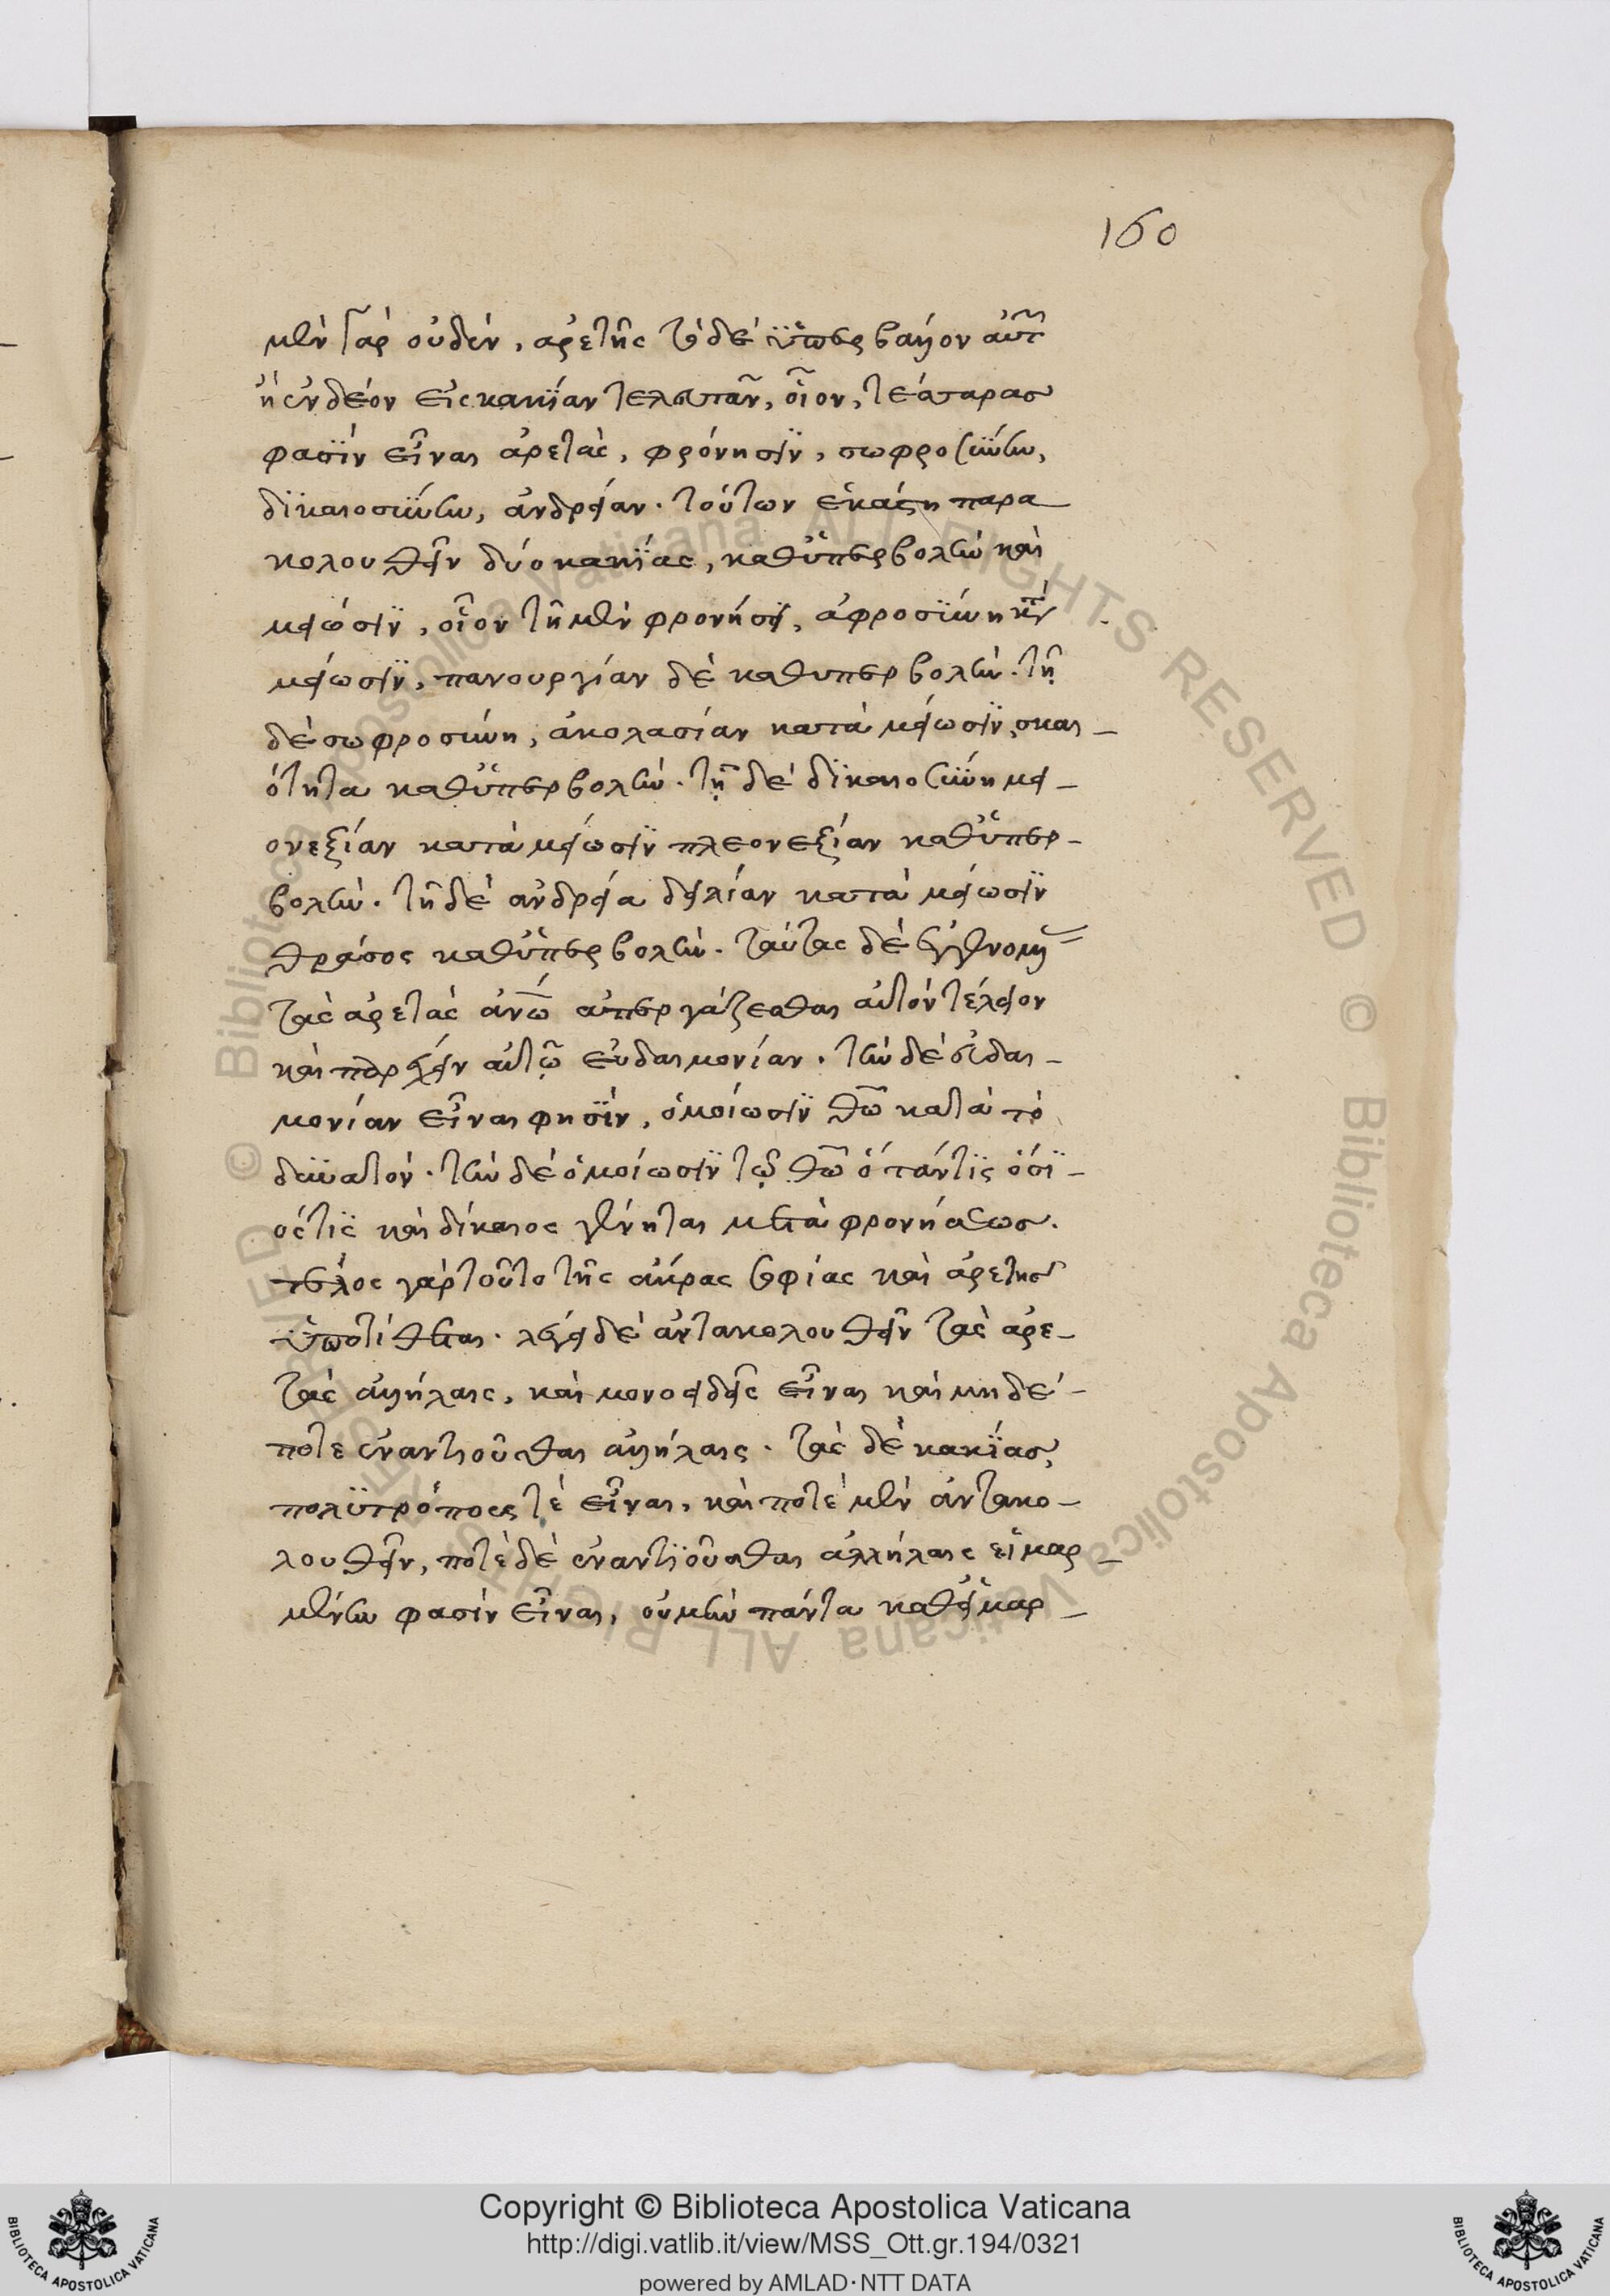 160
μὲν γὰρ οὐδὲν, ἀρετῆς τὸ δὲ ὑπερβάλλον αὐτῆς
ἢ ἐνδέον εἰς κακίαν τελευτᾶν, οἷον, τέσσαρας
φασὶν εἶναι ἀρετὰς, φρόνησιν, σωφροσύνην,
δικαιοσύνην, ἀνδρείαν. τούτων ἑκάστη παρα
κολουθεῖν δύο κακίας, καθ' ὑπερβολὴν καὶ
μείωσιν, οἷον τῆ μὲν φρονήσει, ἀφροσύνην κατὰ
μείωσιν, πανουργίαν δὲ καθυπερβολὴν. τῆ
δὲ σωφροσύνη, ἀκολασίαν κατὰ μείωσιν, σκαι-
ότητα καθ' ὑπερβολὴν. τῆ δὲ δικαιοσύνη μει-
ονεξίαν κατὰ μείωσιν πλεονεξίαν καθ' ὑπερ-
βολὴν. τῆ δὲ ἀνδρεία δειλίαν κατὰ μείωσιν
θράσος καθ' ὑπερβολὴν. ταύτας δὲ ἐγγινομένας
τὰς ἀρετὰς ἀνω ἀπεργάζεσθαι αὐτὸν τέλειον
καὶ παρέχειν αὐτῷ εὐδαιμονίαν. τὴν δὲ εὐδαι-
μονίαν εἶναι φησὶν, ὁμοίωσιν θῶ κατὰ τὸ
δυνατόν. τὴν δὲ ὁμοίωσιν τῷ θῶ ὁπόταν τὶς ὅσι-
ός τις καὶ δίκαιος γένηται μετὰ φρονήσεως.
τέλος γὰρ τοῦτο τῆς ἄκρας σοφίας καὶ ἀρετῆς
ὑποτίθεται. λέγει δὲ ἀντακολουθεῖν τὰς ἀρε-
τὰς ἀλλήλαις, καὶ μονοειδεῖς εἶναι καὶ μηδέ-
ποτε ἐναντιοῦσθαι ἀλλήλαις. τὰς δὲ κακίας,
πολυτρόπους τὲ εἶναι, καὶ ποτὲ μὲν ἀντακο-
λουθεῖν, ποτὲ δὲ ἐναντιοῦσθαι ἀλλήλαις εἱμαρ-
μένην φασὶν εἶναι, οὐ μὴν πάντα καθ' εἱμαρ-
Copyright © Biblioteca Apostolica Vaticana
http://digi.vatlib.it/view/MSS_Ott.gr.194/0321
powered by AMLAD·NTT DATA